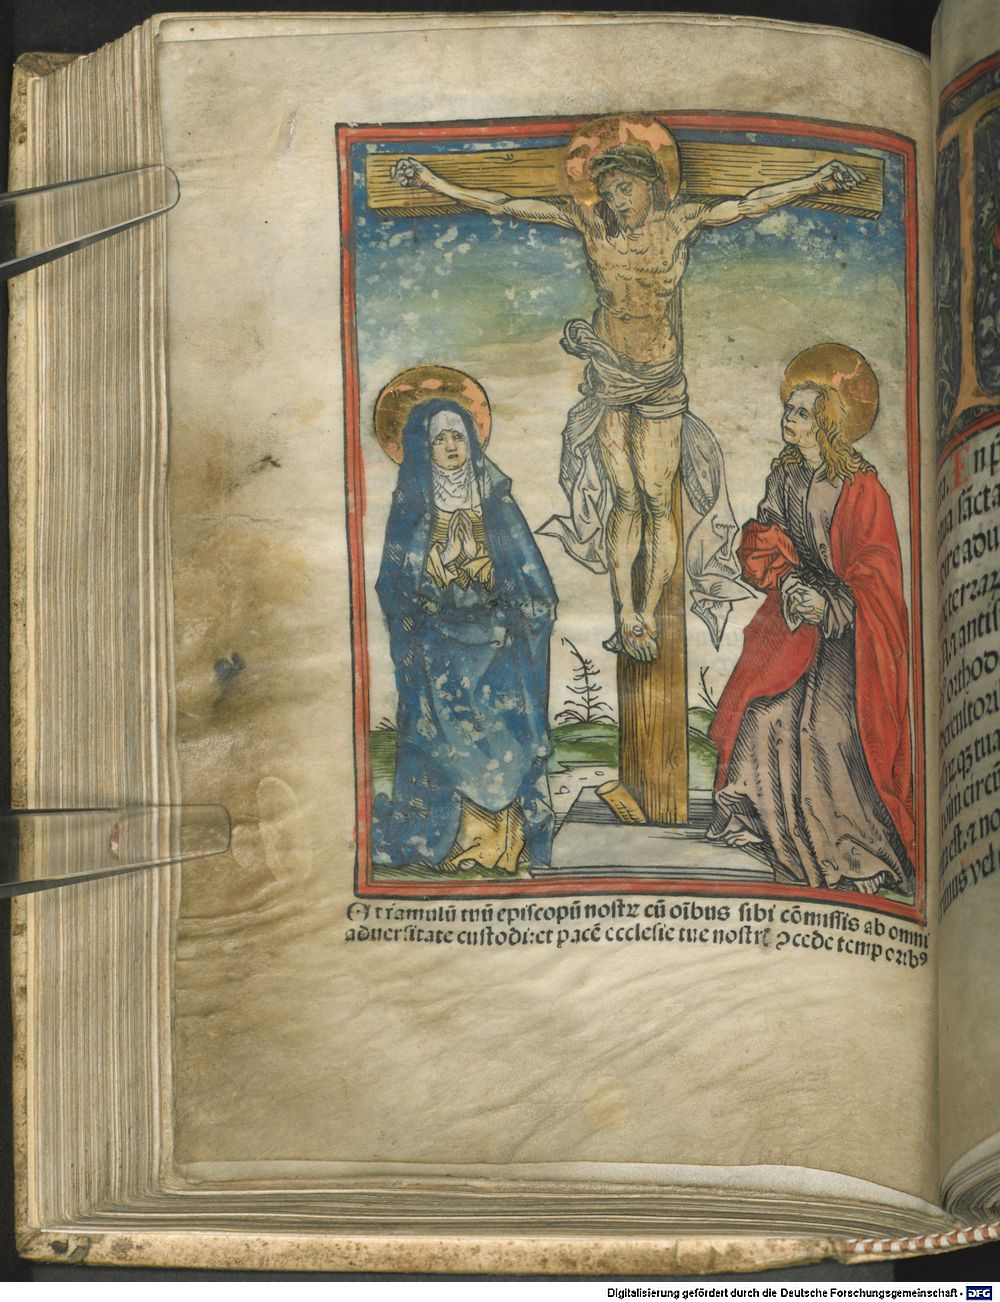 Et famulū tuū episcopū nostrꝝ cū oībus sibi cōmissis ab omni
aduersitate custodi: et pacē ecclesie tue nostrꝭ ꝯcede temporibꝰ
En p
sācta
adu
antist
orthod
cultor
qꝫ tua
circū
est: ⁊ no
imus vel
Digitalisierung gefördert durch die Deutsche Forschungsgemeinschaft - DFG